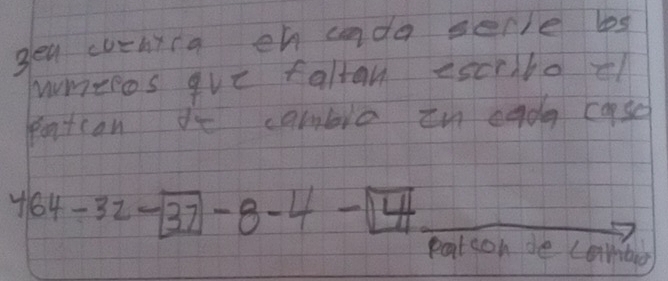 3en cuentra en cada serie los
numeros que faltan escribo el
patron de cambio en cada caso
464-32-32-8-4-4
patron de cambio